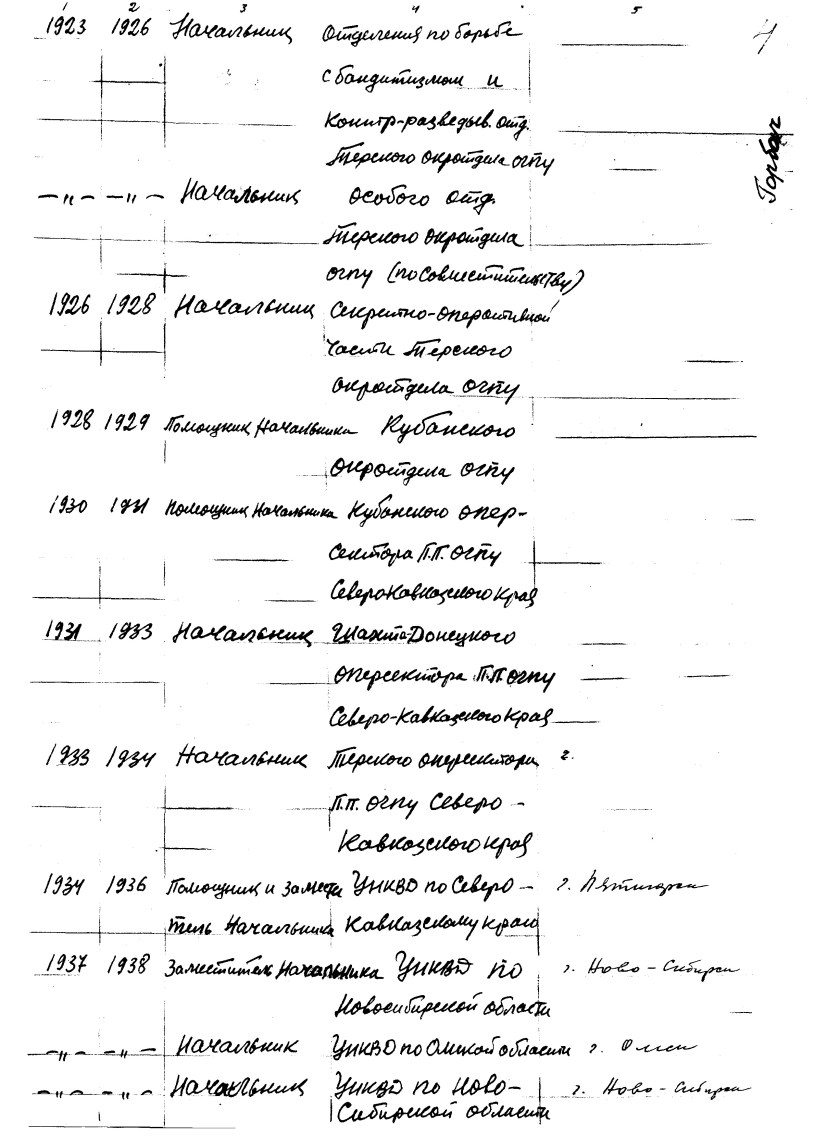 1 2 3 4 5
4
1923 1926 Начальник Отделения по борьбе
с бандитизмом и
Контр-разведыв. отд.
Терского окротдела ОГПУ
Горбач
—"— —"— Начальник особого отд.
Терского окротдела
ОГПУ (по совместительству)
1926 1928 Начальник Секретно-оперативной
части Терского
окротдела ОГПУ
1928 1929 Помощник Начальника Кубанского
окротдела ОГПУ
1930 1931 Помощник Начальника Кубанского опер-
сектора П.П. ОГПУ
Северокавказского края
1931 1933 Начальник Шахто-Донецкого
оперсектора П.П. ОГПУ
Северо-Кавказского края
1933 1934 Начальник Терского оперсектора г.
П.П. ОГПУ Северо-
Кавказского края
1934 1936 Помощник и замести УНКВД по Северо- г. Пятигорск
тель Начальника Кавказскому краю
1937 1938 Заместитель Начальника УНКВД по г. Ново-Сибирск
Новосибирской области
—"— —"— Начальник УНКВД по Омской области г. Омск
—"— —"— Начальник УНКВД по Ново- г. Ново-Сибирск
Сибирской области